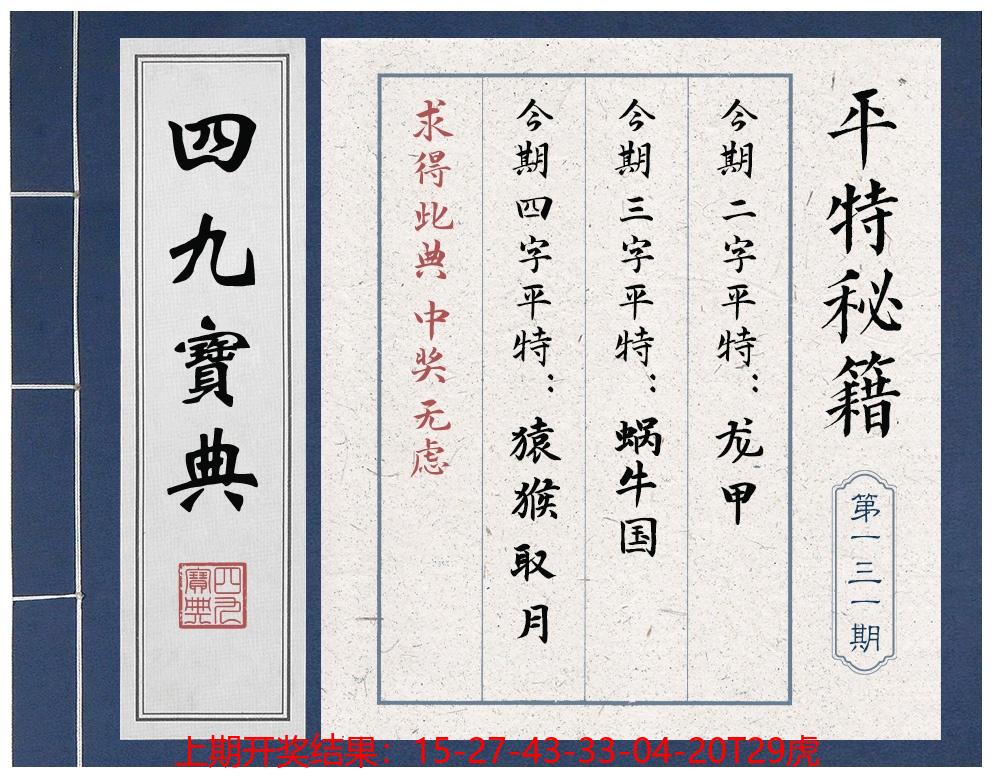 平特秘籍
第一三一期
今期二字平特：龙甲
今期三字平特：蜗牛国
今期四字平特：猿猴取月
求得此典 中奖无虑
四九寶典
四九寶典
上期开奖结果：15-27-43-33-04-20T29虎